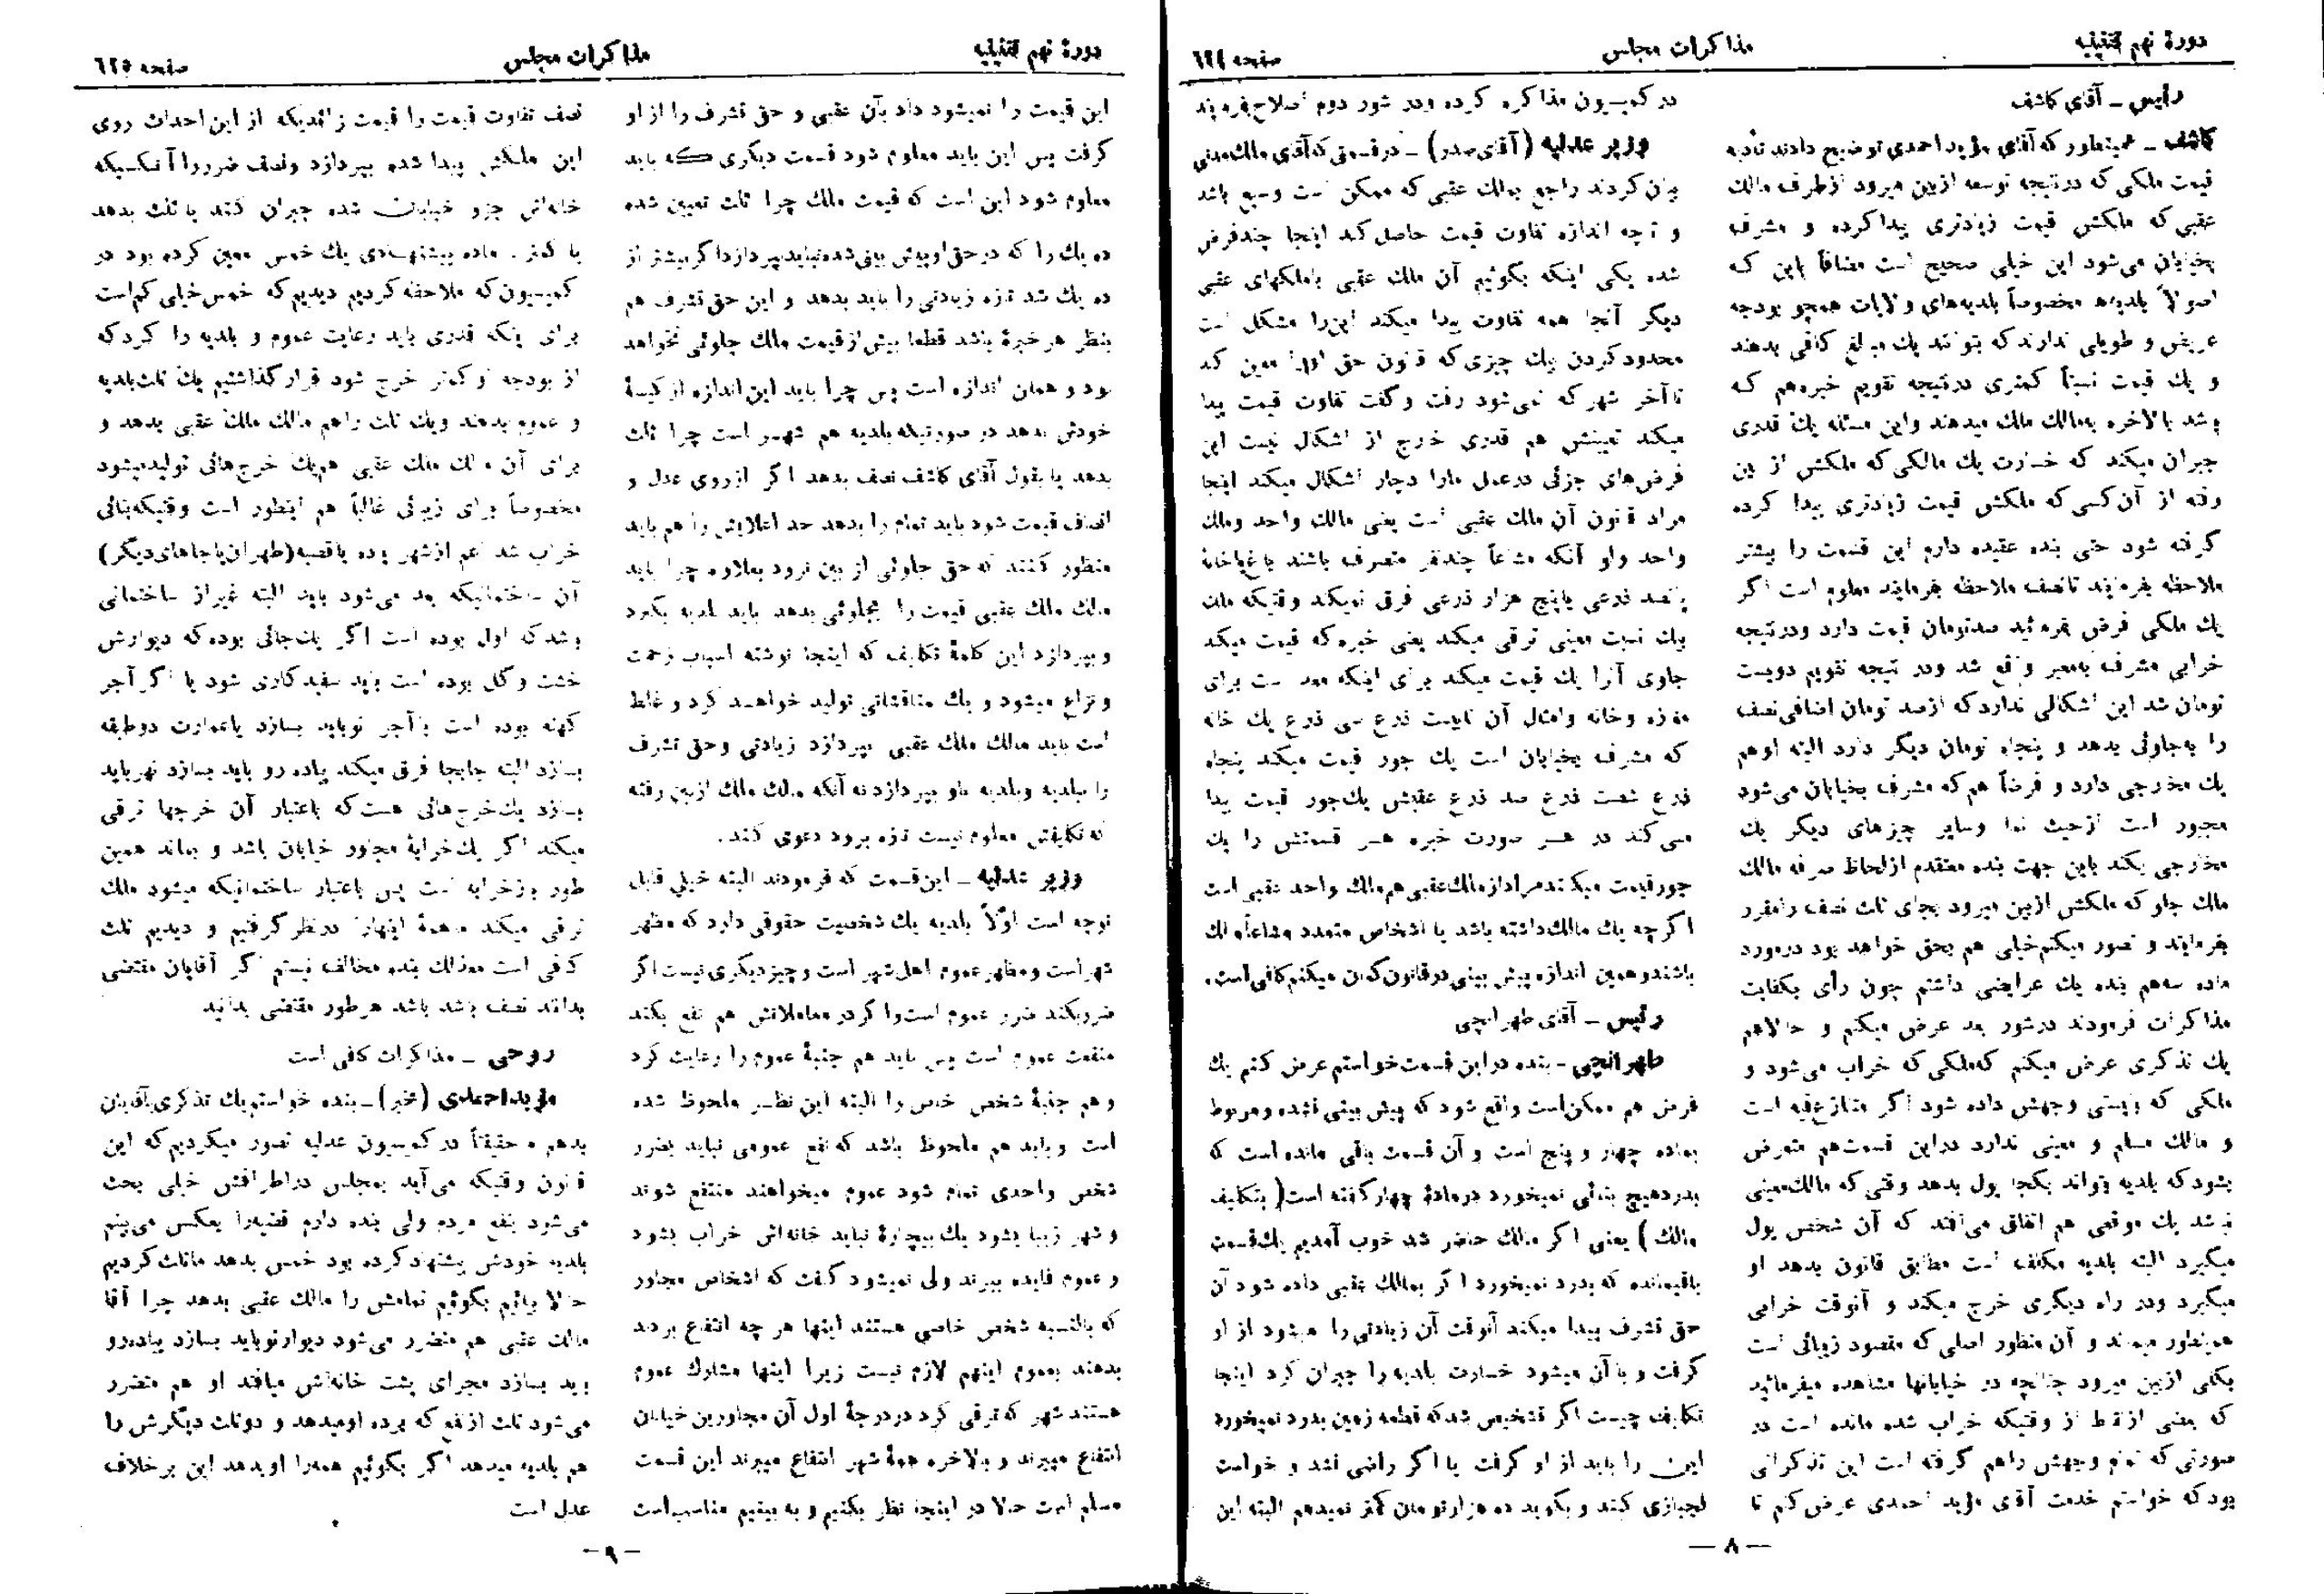 دورهٔ نهم تقنینیه
مذاکرات مجلس
صفحه ٦٢٤
رئیس ـ آقای کاشف
کاشف ـ همینطور که آقای مؤید احمدی توضیح دادند تأدیه
قیمت ملکی که در نتیجه توسعه از بین میرود از طرف مالک
عقبی که ملکش قیمت زیادتری پیدا کرده و مشرف
بخیابان می‌شود این خیلی صحیح است مضافاً باین که
اصولاً بلدیه‌ها مخصوصاً بلدیه‌های ولایات همچو بودجه
عریض و طویلی ندارند که بتوانند یك مبلغ کافی بدهند
و یك قیمت نسبتاً کمتری در نتیجه تقویم خبره هم که
باشد بالاخره بمالك ملك میدهند و این مسئله یك قدری
جبران میکند که خسارت یك مالکی که ملکش از بین
رفته از آن کسی که ملکش قیمت زیادتری پیدا کرده
گرفته شود حتی بنده عقیده دارم این قسمت را بیشتر
ملاحظه بفرمایند تا نصف ملاحظه بفرمایند معلوم است اگر
یك ملکی فرض بفرمائید صد تومان قیمت دارد و در نتیجه
خرابی مشرف بمعبر واقع شد و در نتیجه تقویم دویست
تومان شد این اشکالی ندارد که از صد تومان اضافی نصف
را به جلوئی بدهد و پنجاه تومان دیگر دارد البته او هم
یك مخارجی دارد و فرضاً هم که مشرف بخیابان می‌شود
مجبور است از حیث نما و سایر چیزهای دیگر یك
مخارجی بکند باین جهت بنده معتقدم از لحاظ صرفه مالك
مالك جلو که ملکش از بین میرود بجای ثلث نصف را مقرر
بفرمایند و تصور میکنم خیلی هم بحق خواهد بود در مورد
ماده سه هم بنده یك عرایضی داشتم چون رأی بکفایت
مذاکرات فرمودند در شور بعد عرض میکنم و حالا هم
یك تذکری عرض میکنم که ملکی که خراب می‌شود و
ملکی که بایستی وجهش داده شود اگر متنازع فیه است
و مالك مسلم و معینی ندارد در این قسمت هم متعرض
بشود که بلدیه بتواند بکجا پول بدهد وقتی که مالك معینی
نباشد یك موقعی هم اتفاق می‌افتد که آن شخص پول
میگیرد البته بلدیه مکلف است مطابق قانون بدهد او
میگیرد و در راه دیگری خرج میکند و آنوقت خرابی
همینطور میماند و آن منظور اصلی که مقصود زیبائی است
بکلی از بین میرود چنانچه در خیابانها مشاهده میفرمائید
که بعضی از نقاط از وقتیکه خراب شده مانده است در
صورتی که تمام وجهش را هم گرفته است این تذکراتی
بود که خواستم خدمت آقای مؤید احمدی عرض کنم تا
در کمیسیون مذاکره کرده و در شور دوم اصلاح بفرمایند
وزیر عدلیه (آقای صدر) ـ در قسمتی که آقای ملك مدنی
بیان کردند راجع بمالك عقبی که ممکن است وسیع باشد
و تا چه اندازه تفاوت قیمت حاصل کند اینجا چند فرض
شده یکی اینکه بگوئیم آن ملك عقبی با ملکهای عقبی
دیگر آنجا همه تفاوت پیدا میکند این را مشکل است
محدود کردن یك چیزی که قانون حق آنها معین کند
تا آخر شهر که نمی‌شود رفت و گفت تفاوت قیمت پیدا
میکند تعیینش هم قدری خارج از اشکال نیست این
فرض‌های جزئی در عمل ما را دچار اشکال میکند اینجا
مراد قانون آن مالك عقبی است یعنی مالك واحد و ملك
واحد ولو آنکه مشاعاً چند نفر متصرف باشند باغ یا خانهٔ
پانصد ذرعی یا پنج هزار ذرعی فرق نمیکند وقتیکه ملك
بیك نسبت معینی ترقی میکند یعنی خبره که قیمت میکند
جلوی آنرا یك قیمت میکند برای اینکه معد است برای
مغازه و خانه و امثال آن تا بیست ذرع سی ذرع یك خانه
که مشرف بخیابان است یك جور قیمت میکند پنجاه
ذرع شصت ذرع صد ذرع عقبش یك جور قیمت پیدا
می‌کند در هر صورت خبره هر قسمتش را یك
جور قیمت میکند مراد از مالك عقبی هم مالك واحد عقبی است
اگرچه یك مالك داشته باشد یا اشخاص متعدد مشاعاً مالك
باشند و همین اندازه پیش بینی در قانون گمان میکنم کافی است.
رئیس ـ آقای طهرانچی
طهرانچی ـ بنده در این قسمت خواستم عرض کنم یك
فرض هم ممکن است واقع شود که پیش بینی نشده و مربوط
بماده چهار و پنج است و آن قسمت باقی مانده است که
بدرد هیچ بنائی نمیخورد در مادهٔ چهار گفته است (بتکلیف
مالك) یعنی اگر مالك حاضر شد خوب آمدیم یك قسمت
باقیمانده که بدرد نمیخورد اگر بمالك عقبی داده شود آن
حق تشرف پیدا میکند آنوقت آن زیادتی را میشود از او
گرفت و با آن میشود خسارت بلدیه را جبران کرد اینجا
تکلیف چیست اگر تشخیص شد که قطعه زمین بدرد نمیخورد
این را باید از او گرفت یا اگر راضی نشد و خواست
لجبازی کند و بگوید ده هزار تومان کمتر نمیدهم البته این
— ٨ —
دورهٔ نهم تقنینیه
مذاکرات مجلس
صفحه ٦٢٥
این قیمت را نمیشود داد بآن عقبی و حق تشرف را از او
گرفت پس این باید معلوم شود قسمت دیگری که باید
معلوم شود این است که قیمت ملك چرا ثلث تعیین شده
ده یك را که در حق او پیش بینی شده نباید بپردازد اگر بیشتر از
ده یك شد تازه زیادتی را باید بدهد و این حق تشرف هم
بنظر هر خبرهٔ باشد قطعاً بیش از قیمت ملك جلوئی نخواهد
بود و همان اندازه است پس چرا باید این اندازه از کیسهٔ
خودش بدهد در صورتیکه بلدیه هم شهر است چرا ثلث
بدهد یا بقول آقای کاشف نصف بدهد اگر از روی عدل و
انصاف قیمت شود باید تمام را بدهد حد اعلایش را هم باید
منظور کنند که حق جلوئی از بین نرود بعلاوه چرا باید
مالك ملك عقبی قیمت را بجلوئی بدهد باید بلدیه بگیرد
و بپردازد این کلمهٔ تکلیف که اینجا نوشته اسباب زحمت
و نزاع میشود و یك مناقشاتی تولید خواهد کرد و غلط
است باید مالك ملك عقبی بپردازد زیادتی و حق تشرف
را ببلدیه و بلدیه باو بپردازد نه آنکه مالك ملك از بین رفته
که تکلیفش معلوم نیست تازه برود دعوی کند.
وزیر عدلیه ـ این قسمت که فرمودند البته خیلی قابل
توجه است اولاً بلدیه یك شخصیت حقوقی دارد که مظهر
شهر است و مظهر عموم اهل شهر است و چیز دیگری نیست اگر
ضرر بکند ضرر عموم است و اگر در معاملاتش هم نفع بکند
منفعت عموم است پس باید هم جنبهٔ عموم را رعایت کرد
و هم جنبهٔ شخص خاص را البته این نظر ملحوظ شده
است و باید هم ملحوظ باشد که نفع عمومی نباید بضرر
شخص واحدی تمام شود عموم میخواهند منتفع شوند
و شهر زیبا بشود یك بیچارهٔ نباید خانه‌اش خراب بشود
و عموم فایده ببرند ولی نمیشود گفت که اشخاص مجاور
که بالنسبه شخص خاصی هستند اینها هر چه انتفاع بردند
بدهند بعموم اینهم لازم نیست زیرا اینها مشارك عموم
هستند شهر که ترقی کرد در درجهٔ اول آن مجاورین خیابان
انتفاع میبرند و بالاخره همهٔ شهر انتفاع میبرند این قسمت
مسلم است حالا در اینجا نظر بکنیم و به بینیم مناسب است
نصف تفاوت قیمت را قیمت زائدیکه از این احداث روی
این ملکش پیدا شده بپردازد و نصف ضرر را آنکسیکه
خانه‌اش جزو خیابان شده جبران کند یا ثلث بدهد
یا کمتر. ماده پیشنهادی یك خمس معین کرده بود در
کمیسیون که ملاحظه کردیم دیدیم که خمس خیلی کم است
برای اینکه قدری باید رعایت عموم و بلدیه را کرد که
از بودجه او کمتر خرج شود قرار گذاشتیم یك ثلث بلدیه
و عموم بدهند و یك ثلث را هم مالك ملك عقبی بدهد و
برای آن مالك ملك عقبی هم یك خرج‌هائی تولید میشود
مخصوصاً برای زیبائی غالباً هم اینطور است وقتیکه بنائی
خراب شد اعم از شهر یا ده یا قصبه (طهران یا جاهای دیگر)
آن ساختمانیکه بعد می‌شود باید البته غیر از ساختمانی
باشد که اول بوده است اگر یك جائی بوده که دیوارش
خشت و گل بوده است باید سفید کاری شود یا اگر آجر
کهنه بوده است با آجر نو باید بسازد یا عمارت دو طبقه
بسازد البته جابجا فرق میکند پیاده رو باید بسازد نهر باید
بسازد یك خرج‌هائی هست که باعتبار آن خرجها ترقی
میکند اگر یك خرابهٔ مجاور خیابان باشد و بماند همین
طور باز خرابه است پس باعتبار ساختمانیکه میشود ملك
ترقی میکند ما همهٔ اینها را در نظر گرفتیم و دیدیم ثلث
کافی است معذلك بنده مخالف نیستم اگر آقایان مقتضی
بدانند نصف باشد باشد هر طور مقتضی بدانید
روحی ـ مذاکرات کافی است
مؤید احمدی (مخبر) ـ بنده خواستم یك تذکری بآقایان
بدهم ما حقیقتاً در کمیسیون عدلیه تصور میکردیم که این
قانون وقتیکه می‌آید بمجلس در اطرافش خیلی بحث
می‌شود بنفع مردم ولی بنده دارم قضیه را بعکس می‌بینم
بلدیه خودش پیشنهاد کرده بود خمس بدهد ما ثلث کردیم
حالا بیائیم بگوئیم تمامش را مالك عقبی بدهد چرا آقا
مالك عقبی هم متضرر می‌شود دیوار نو باید بسازد پیاده‌رو
باید بسازد مجرای پشت خانه‌اش میافتد او هم متضرر
می‌شود ثلث از نفع که برده او میدهد و دو ثلث دیگرش را
هم بلدیه میدهد اگر بگوئیم همه را او بدهد این بر خلاف
عدل است
— ٩ —